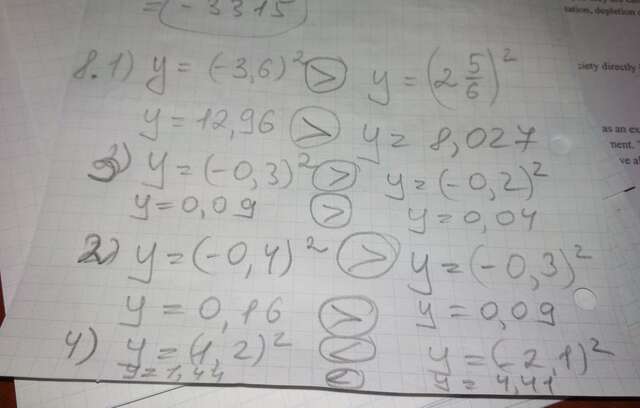 = (-3315
8.1) y = (-3,6)² > y = (2 5/6)²
y = 12,96 > y = 8,027
3) y = (-0,3)² > y = (-0,2)²
y = 0,09 > y = 0,04
2) y = (-0,4)² > y = (-0,3)²
y = 0,16 > y = 0,09
4) y = (1,2)² < y = (-2,1)²
y = 1,44 < y = 4,41
tation, depletion
ciety directly
as an ex
ment.
ve al